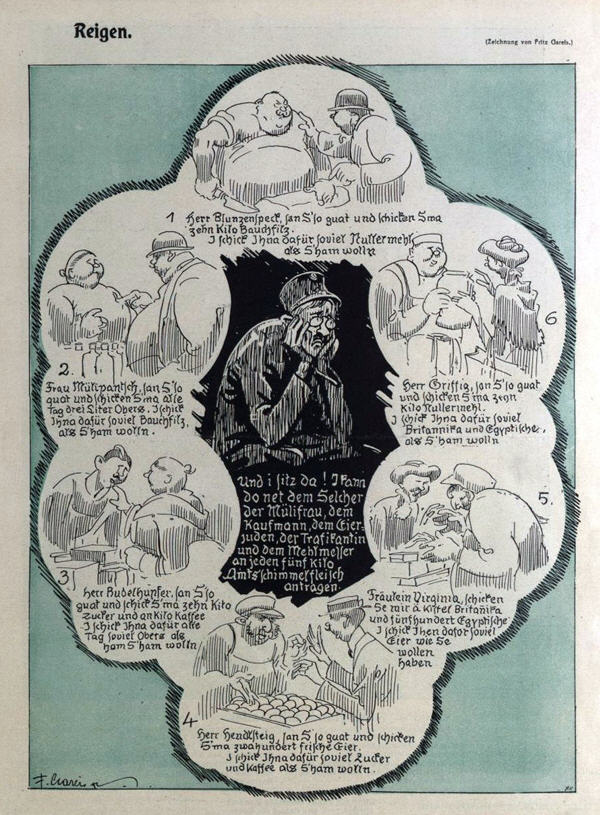 Reigen.
(Zeichnung von Fritz Gareis.)
1 Herr Blunzenspeck, san S' so guat und schicken S'ma
zehn Kilo Bauchfilz.
I schick Ihna dafür soviel Nullermehl
als S'ham wolln
2.
Frau Mülipantsch, san S' so
guat und schicken S'ma alle
Tag drei Liter Obers. I schick
Ihna dafür soviel Bauchfilz,
als S'ham wolln.
3)
Herr Budelhupfer, san S' so
guat und schick S'ma zehn Kilo
Zucker und an Kilo Kaffee
I schick Ihna dafür alle
Tag soviel Obers als
ham S' wolln
4
Herr Hendlsteig, san S' so guat und schicken
S'ma zwahundert frische Eier.
I schick Ihna dafür soviel Zucker
und Kaffee als S'ham wolln.
5.
Fräulein Virginia, schicken
Se mir à Kistel Britanika
und fünfhundert Egyptische
I schick Ihen dafor soviel
Eier wie Se
wollen
haben
6
Herr Griffig, san S' so guat
und schicken S'ma zehn
Kilo Nullermehl.
I schick Ihna dafür soviel
Britannika und Egyptische,
als S'ham wolln
Und i sitz da! I kann
do net dem Selcher
der Mülifrau, dem
Kaufmann, dem Eier-
juden, der Trafikantin
und dem Mehlmesser
an jeden fünf Kilo
Amtsschimmelfleisch
antragen.
F. Gareis